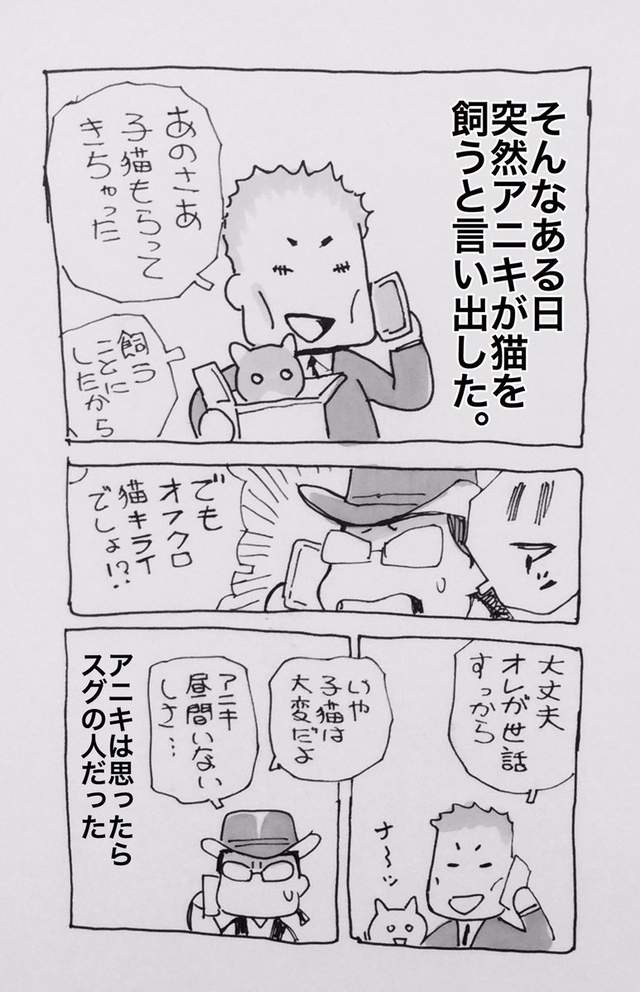 そんなある日
突然アニキが猫を
飼うと言い出した。
あのさあ
子猫もらって
きちゃった
飼う
ことに
したから
アッ
でも
オフクロ
猫キライ
でしょ!?
大丈夫
オレが世話
すっから
サ〜ッ
いや
子猫は
大変だよ
アニキ
昼間いない
しさ…
アニキは思ったら
スグの人だった